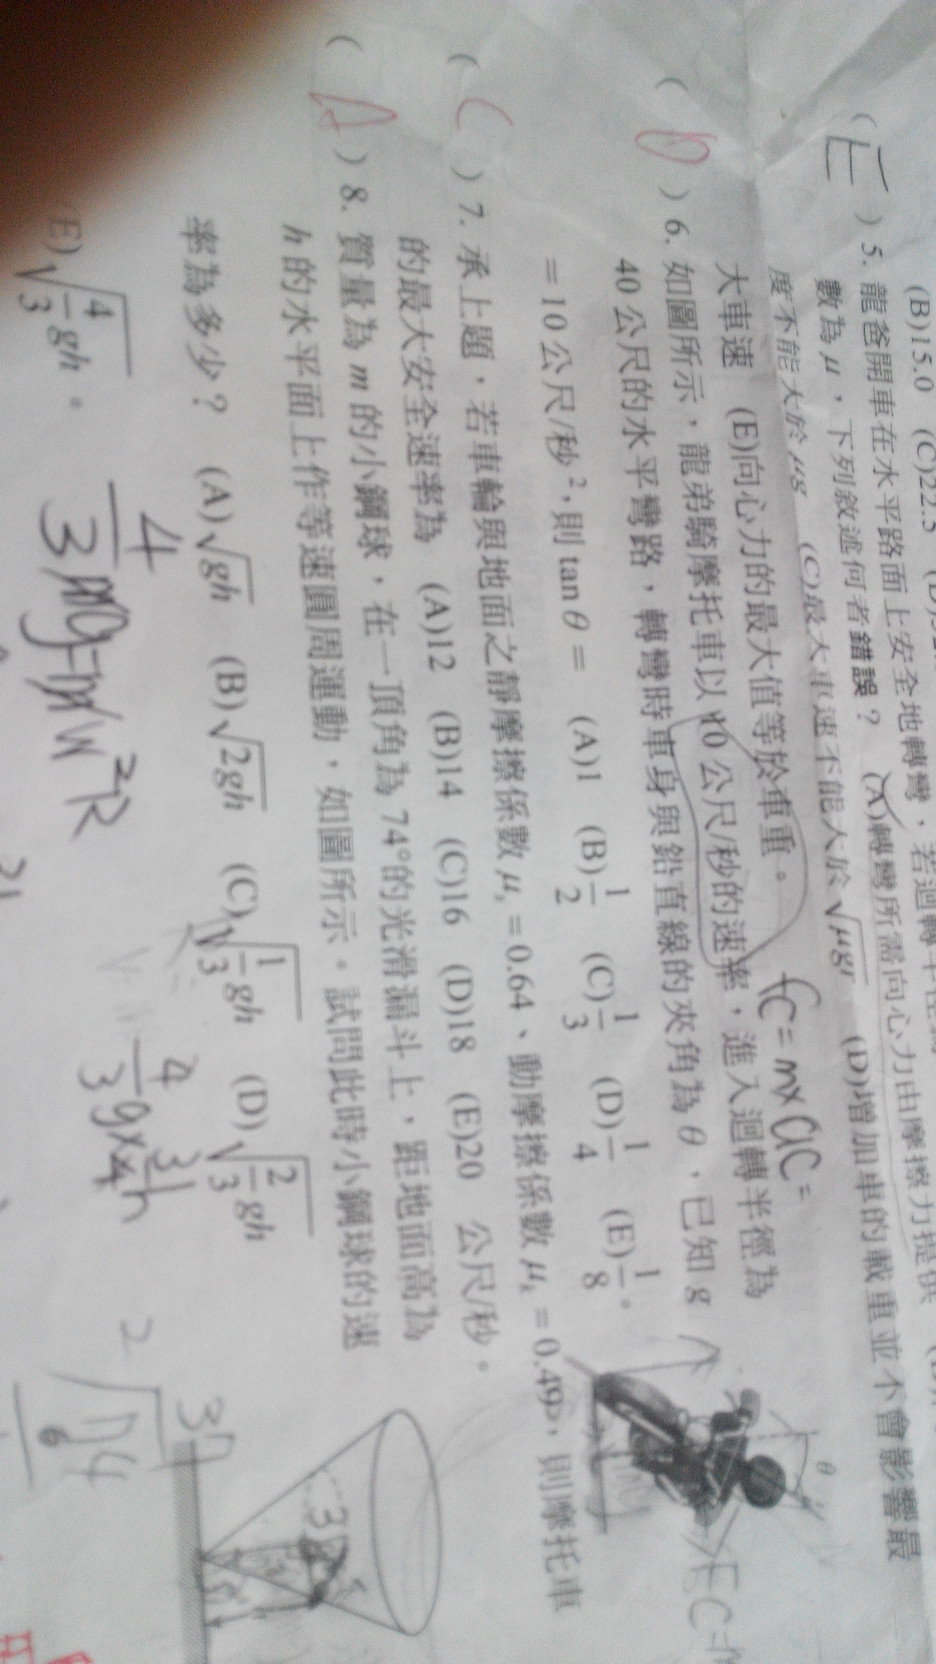 (B)15.0 (C)22.5
( E ) 5. 龍爸開車在水平路面上安全地轉彎，若迴轉半徑為
數為 μ，下列敘述何者錯誤？ (A)轉彎所需向心力由摩擦力提供
度不能大於 μg (C)最大車速不能大於 √μgr (D)增加車的載重並不會影響最
大車速 (E)向心力的最大值等於車重。
fc = m×ac =
( D ) 6. 如圖所示，龍弟騎摩托車以 10 公尺/秒的速率，進入迴轉半徑為
40 公尺的水平彎路，轉彎時車身與鉛直線的夾角為 θ，已知 g
= 10 公尺/秒², 則 tan θ = (A)1 (B)1/2 (C)1/3 (D)1/4 (E)1/8。
θ
( C ) 7. 承上題，若車輪與地面之靜摩擦係數 μs = 0.64、動摩擦係數 μk = 0.49，則摩托車
的最大安全速率為 (A)12 (B)14 (C)16 (D)18 (E)20 公尺/秒。
( A ) 8. 質量為 m 的小鋼球，在一頂角為 74°的光滑漏斗上，距地面高為
h 的水平面上作等速圓周運動，如圖所示。試問此時小鋼球的速
率為多少？ (A)√gh (B)√2gh (C)√1/3 gh (D)√2/3 gh
(E)√4/3 gh。
4/3 mg = mw²R
4/3 g × 3/4 h
37